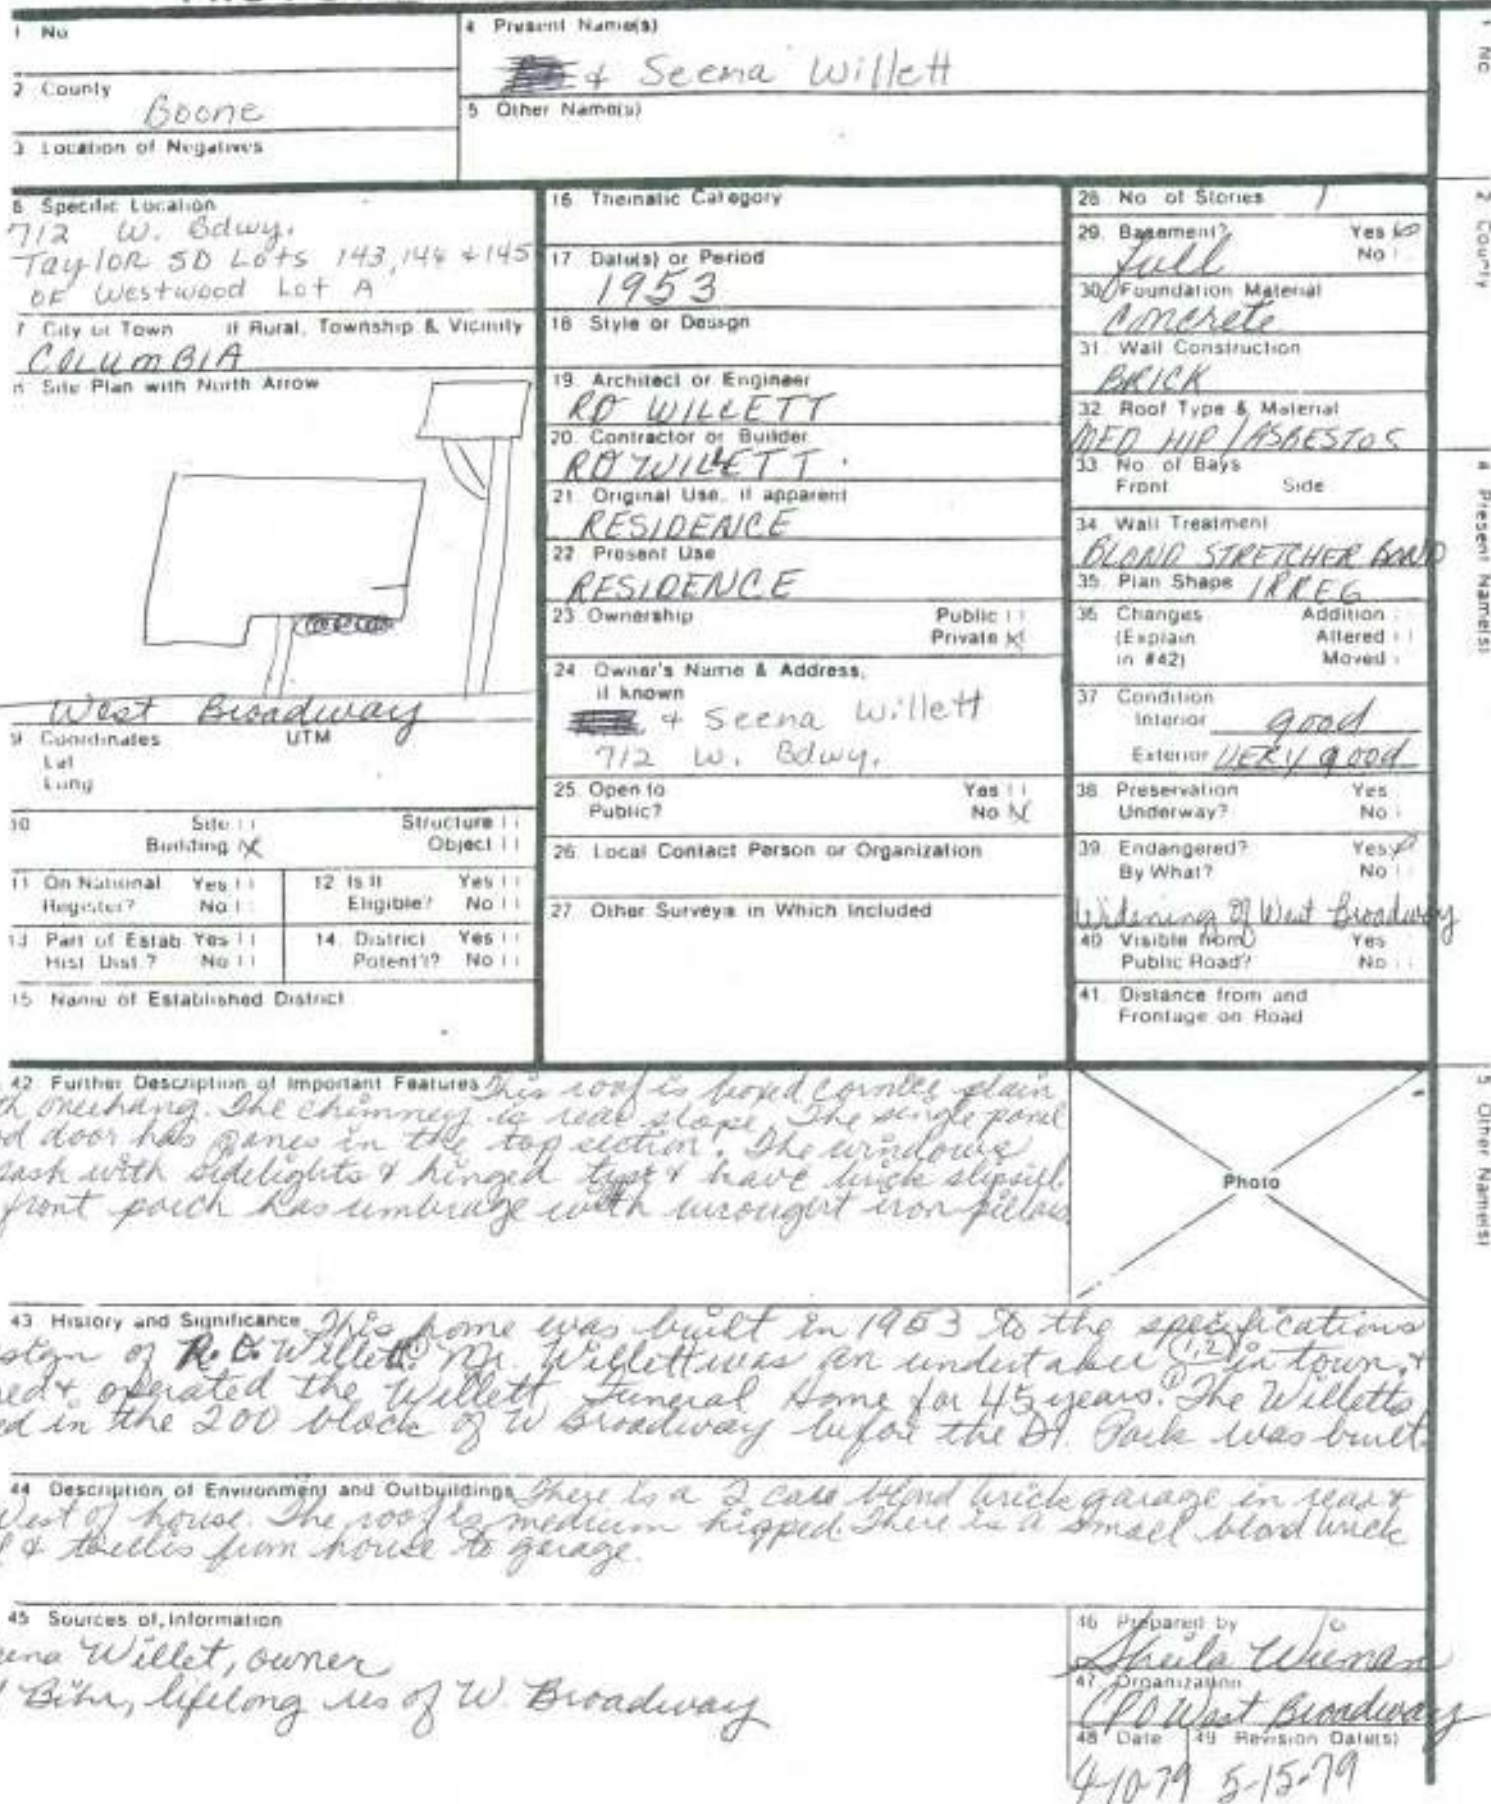 1 No
4 Present Name(s)
& Seena Willett
2 County
Boone
5 Other Name(s)
3 Location of Negatives
6 Specific Location
712 W. Bdwy.
Taylor SD Lots 143, 144 & 145
OF Westwood Lot A
7 City or Town If Rural, Township & Vicinity
COLUMBIA
8 Site Plan with North Arrow
West Broadway
9 Coordinates UTM
Lat
Long
10 Site Structure
Building X Object
11 On National Register? Yes No
12 Is It Eligible? Yes No
13 Part of Estab Hist Dist.? Yes No
14. District Potent'l? Yes No
15 Name of Established District
16 Thematic Category
17 Date(s) or Period
1953
18 Style or Design
19. Architect or Engineer
RO WILLETT
20. Contractor or Builder
RO WILLETT
21. Original Use, if apparent
RESIDENCE
22 Present Use
RESIDENCE
23 Ownership Public
Private X
24 Owner's Name & Address,
if known
& Seena Willett
712 W. Bdwy.
25. Open to Yes
Public? No X
26. Local Contact Person or Organization
27 Other Surveys in Which Included
28 No of Stories 1
29. Basement? Yes
full No
30 Foundation Material
Concrete
31. Wall Construction
BRICK
32 Roof Type & Material
MED HIP / ASBESTOS
33 No of Bays
Front Side
34 Wall Treatment
BLOND STRETCHER BOND
35 Plan Shape IRREG
36 Changes Addition
(Explain Altered
in #42) Moved
37 Condition
Interior good
Exterior VERY good
38 Preservation Yes
Underway? No
39. Endangered? Yes
By What? No
Widening of West Broadway
40 Visible from Yes
Public Road? No
41. Distance from and
Frontage on Road
42 Further Description of Important Features This roof is boxed cornice plain
overhang. The chimney is rear slope. The single panel
door has panes in the top section. The windows
sash with sidelights & hinged type & have brick slipsill
front porch has umbrage with wrought iron pillars
Photo
43 History and Significance This home was built in 1953 to the specifications
of R.O. Willett. Mr. Willett was an undertaker (1,2) in town, &
operated the Willett Funeral Home for 45 years. The Willetts
in the 200 block of W Broadway before the Park was built.
44 Description of Environment and Outbuildings There is a 2 car blond brick garage in rear &
West of house. The roof is medium hipped. There is a small blond brick
& trellis from house to garage.
45 Sources of Information
Willet, owner
Bihr, lifelong res of W. Broadway
46 Prepared by
Sheila
47 Organization
CPO West Broadway
48 Date 49 Revision Date(s)
4-10-79 5-15-79
1 No
2 County
4 Present Name(s)
5 Other Name(s)